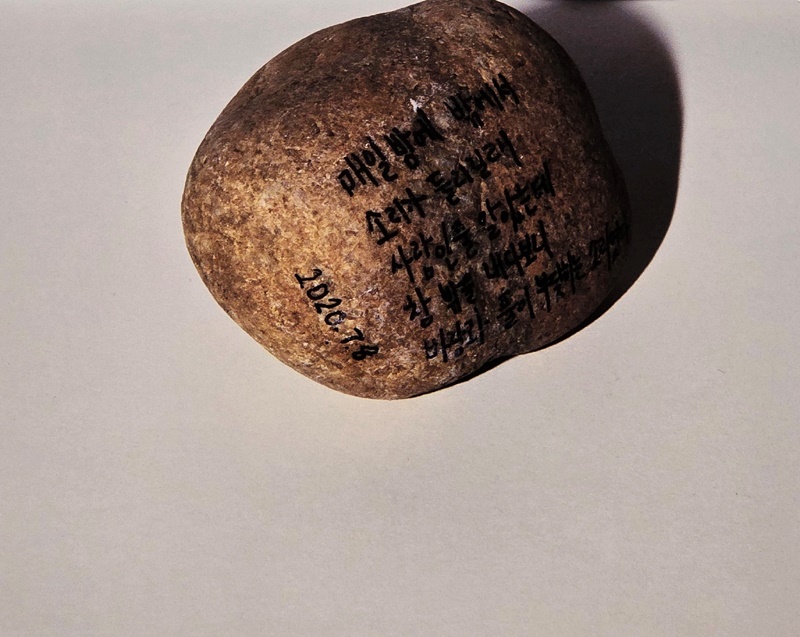 매일밤에 밖에서
소리가 들리길래
사람인줄 알았는데
창 밖을 내다보니
바람과 돌이 부딪히는
2020.7.8